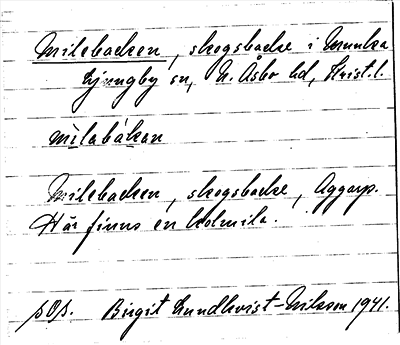 Milebacken, skogsbacke i Munka
Ljungby sn, N. Åsbo hd, Krist. l.
mìlabákan
Milebacken, skogsbacke, Aggarp.
Här finns en kolmila.
Birgit Lundkvist-Nilsson 1941.